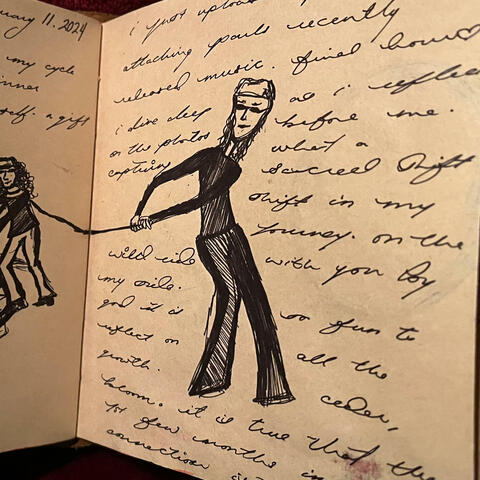 uary 11. 2024
my cycle
inner
self. a gift
i just upload
attaching paris recently
released music. final hours
i dive deep as i reflec
on the photos before me.
capturing what a
sacred shift
shift in my
journey. on the
wild ride with you by
my side.
god it is so fun to
reflect on all the
growth. ceder,
bloom. it is true that the
few months in
connection